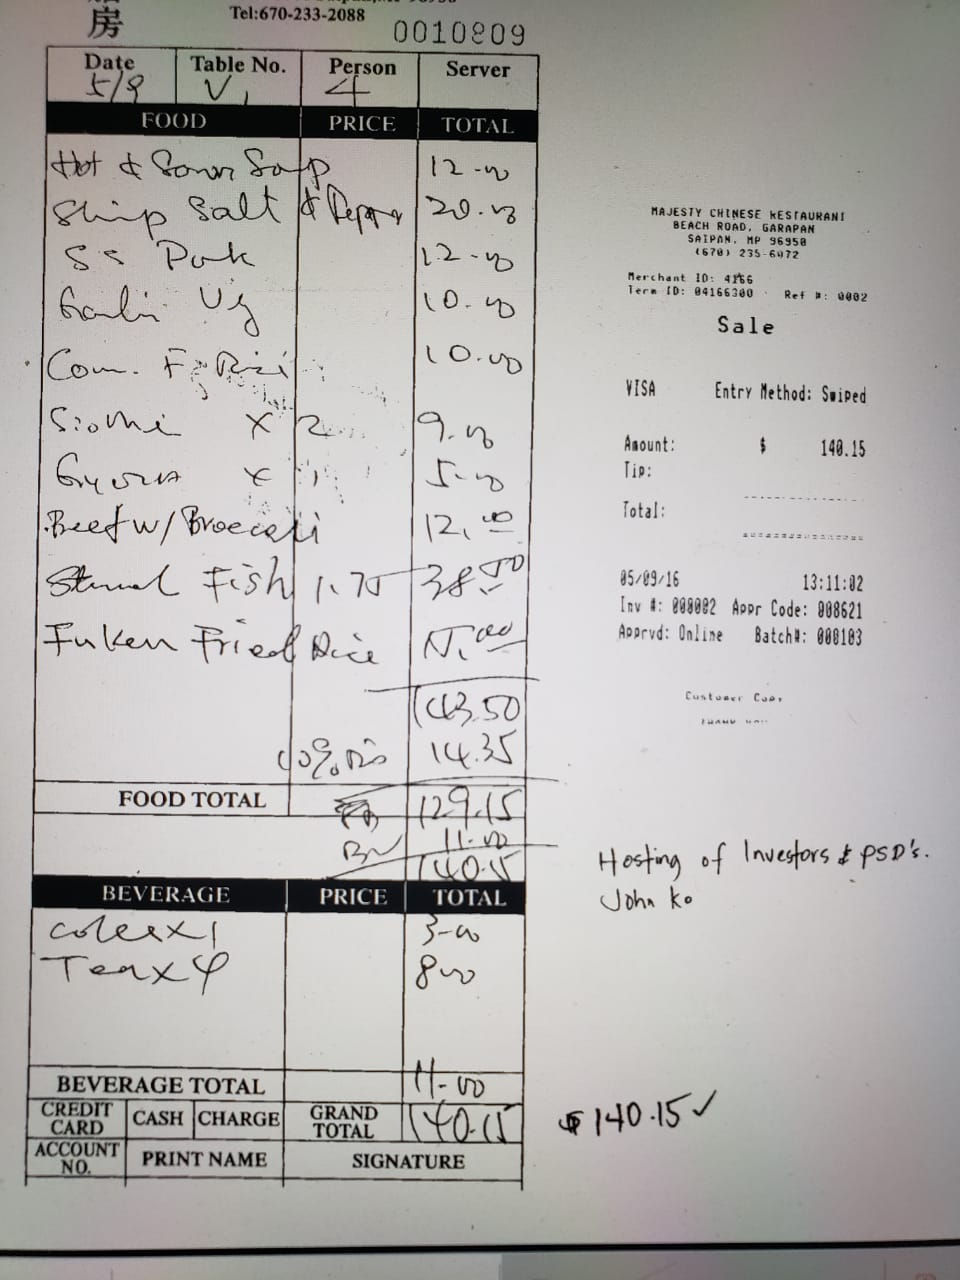 房
Tel:670-233-2088
0010809
Date Table No. Person Server
5/9 V1 4
FOOD PRICE TOTAL
Hot & Sour Soup 12.00
Shrip Salt & Pepper 20.00
SS Pork 12.00
10.00
Com. F. Rice 10.00
Siomi x 2 9.00
Gyoza x 1 5.00
Beef w/ Broccoli 12.00
Steamed Fish 1.75 38.50
Fuken Fried Rice 15.00
143.50
10% Dis 14.35
FOOD TOTAL 129.15
BV 11.00
140.15
BEVERAGE PRICE TOTAL
x1 3.00
Tea x 4 8.00
BEVERAGE TOTAL 11.00
CREDIT CARD CASH CHARGE GRAND TOTAL 140.15
ACCOUNT NO. PRINT NAME SIGNATURE
MAJESTY CHINESE RESTAURANT
BEACH ROAD, GARAPAN
SAIPAN, MP 96950
(670) 235-6972
Merchant ID: 4166
Term ID: 04166300 Ref #: 0002
Sale
VISA Entry Method: Swiped
Amount: $ 140.15
Tip:
Total:
05/09/16 13:11:02
Inv #: 000002 Appr Code: 008621
Apprvd: Online Batch#: 000103
Customer Copy
THANK YOU
Hosting of Investors & PSD's.
John Ko
$140.15 ✓